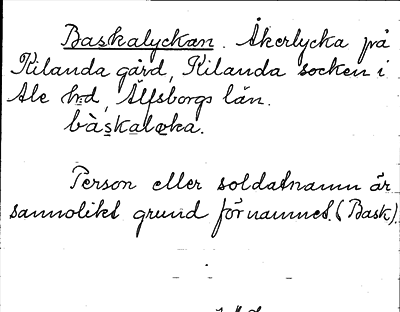 Baskalyckan. Åkerlycka på
Kilanda gård, Kilanda socken i
Ale hd, Älfsborgs län.
bàskaløka.
Person eller soldatnamn är
sannolikt grund för namnet. (Bask).